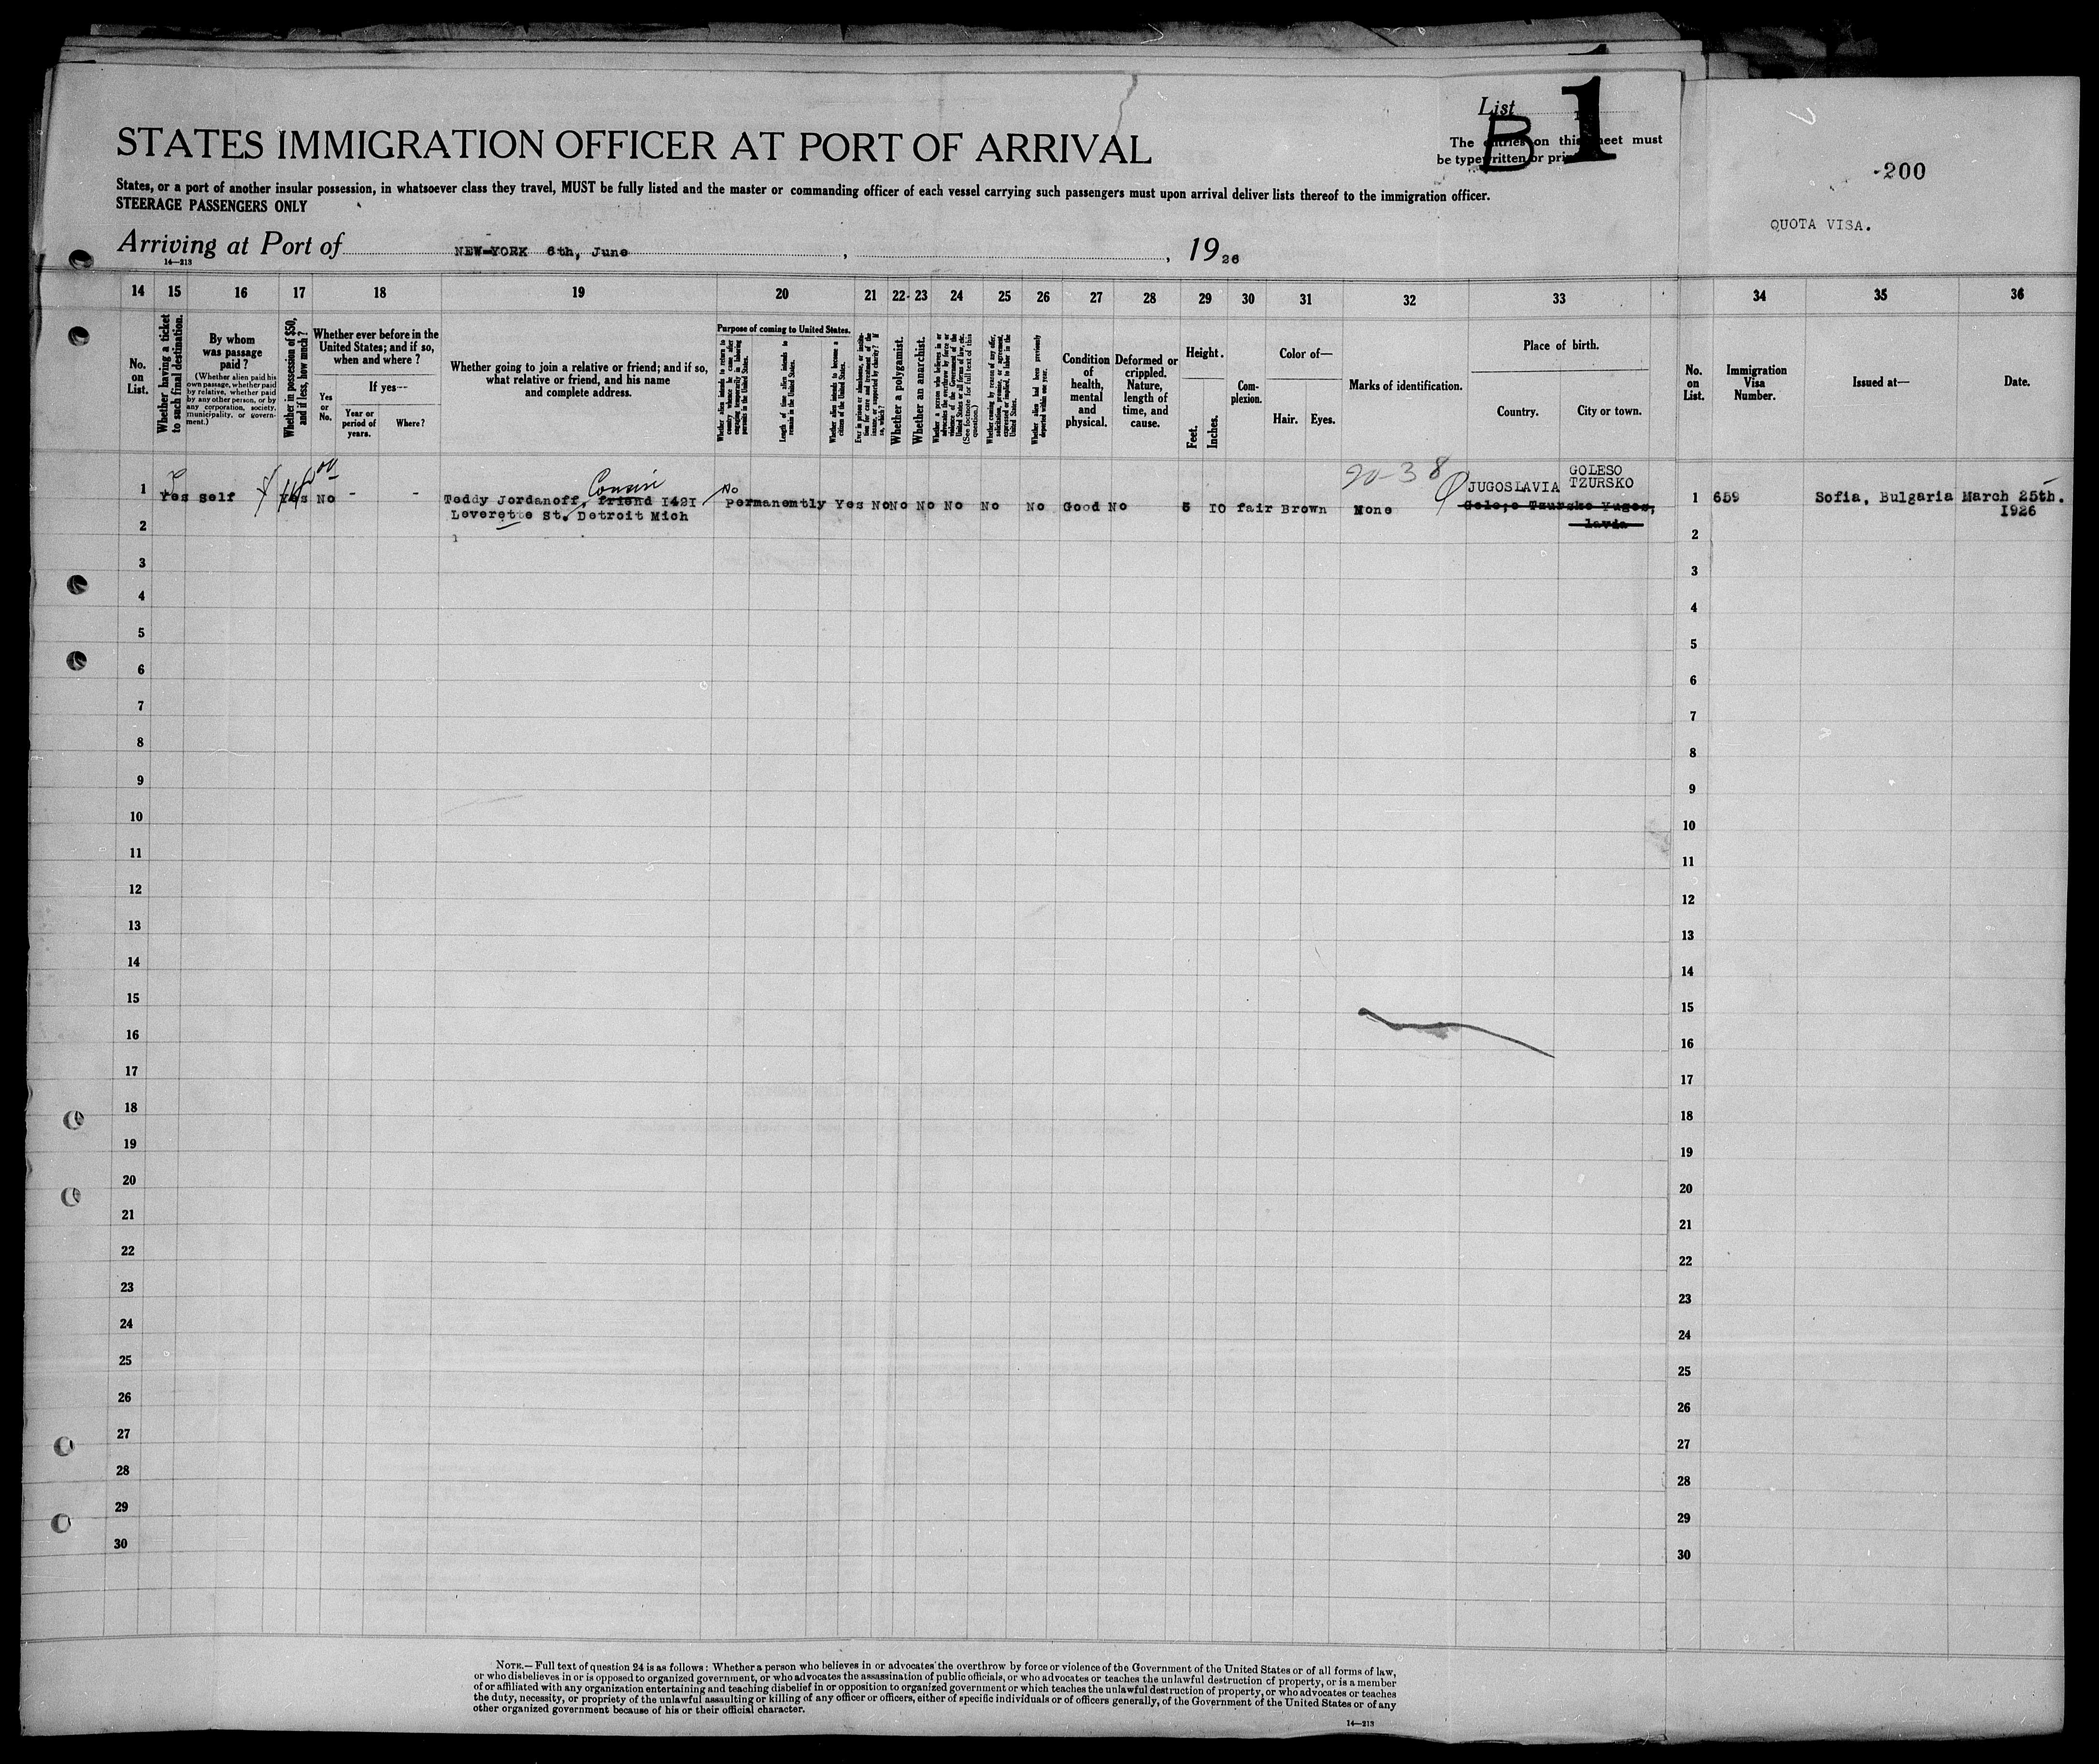 List
B 1
STATES IMMIGRATION OFFICER AT PORT OF ARRIVAL
The entries on this sheet must
be typewritten or printed.
-200
States, or a port of another insular possession, in whatsoever class they travel, MUST be fully listed and the master or commanding officer of each vessel carrying such passengers must upon arrival deliver lists thereof to the immigration officer.
STEERAGE PASSENGERS ONLY
QUOTA VISA.
Arriving at Port of NEW-YORK 6th, June, , 1926
14—213
14 15 16 17 18 19 20 21 22 23 24 25 26 27 28 29 30 31 32 33 34 35 36
No. on List.
Whether having a ticket to such final destination.
By whom was passage paid?
(Whether alien paid his own passage, whether paid by relative, whether paid by any other person, or by any corporation, society, municipality, or government.)
Whether in possession of $50, and if less, how much?
Whether ever before in the United States; and if so, when and where?
Yes or No.
If yes—
Year or period of years.
Where?
Whether going to join a relative or friend; and if so, what relative or friend, and his name and complete address.
Purpose of coming to United States.
Whether alien intends to return to country whence he came after engaging temporarily in laboring pursuits in the United States.
Length of time alien intends to remain in the United States.
Whether alien intends to become a citizen of the United States.
Ever in prison or almshouse, or institution for care and treatment of the insane, or supported by charity? If so, which?
Whether a polygamist.
Whether an anarchist.
Whether a person who believes in or advocates the overthrow by force or violence of the Government of the United States or all forms of law, etc. (See footnote for full text of this question.)
Whether coming by reason of any offer, solicitation, promise, or agreement, expressed or implied, to labor in the United States.
Whether alien had been previously deported within one year.
Condition of health, mental and physical.
Deformed or crippled. Nature, length of time, and cause.
Height.
Feet.
Inches.
Complexion.
Color of—
Hair.
Eyes.
Marks of identification.
Place of birth.
Country.
City or town.
No. on List.
Immigration Visa Number.
Issued at—
Date.
20-38
1 Yes self Yes No - - Teddy Jordanoff, friend Cousin 1421 No Permanemtly Yes No No No No No No Good No 5 10 fair Brown None JUGOSLAVIA GOLESO TZURSKO 1 659 Sofia, Bulgaria March 25th.
Leverette St. Detroit Mich
1926
2 2
3 3
4 4
5 5
6 6
7 7
8 8
9 9
10 10
11 11
12 12
13 13
14 14
15 15
16 16
17 17
18 18
19 19
20 20
21 21
22 22
23 23
24 24
25 25
26 26
27 27
28 28
29 29
30 30
NOTE.—Full text of question 24 is as follows: Whether a person who believes in or advocates the overthrow by force or violence of the Government of the United States or of all forms of law,
or who disbelieves in or is opposed to organized government, or who advocates the assassination of public officials, or who advocates or teaches the unlawful destruction of property, or is a member
of or affiliated with any organization entertaining and teaching disbelief in or opposition to organized government or which teaches the unlawful destruction of property, or who advocates or teaches
the duty, necessity, or propriety of the unlawful assaulting or killing of any officer or officers, either of specific individuals or of officers generally, of the Government of the United States or of any
other organized government because of his or their official character.
14—213